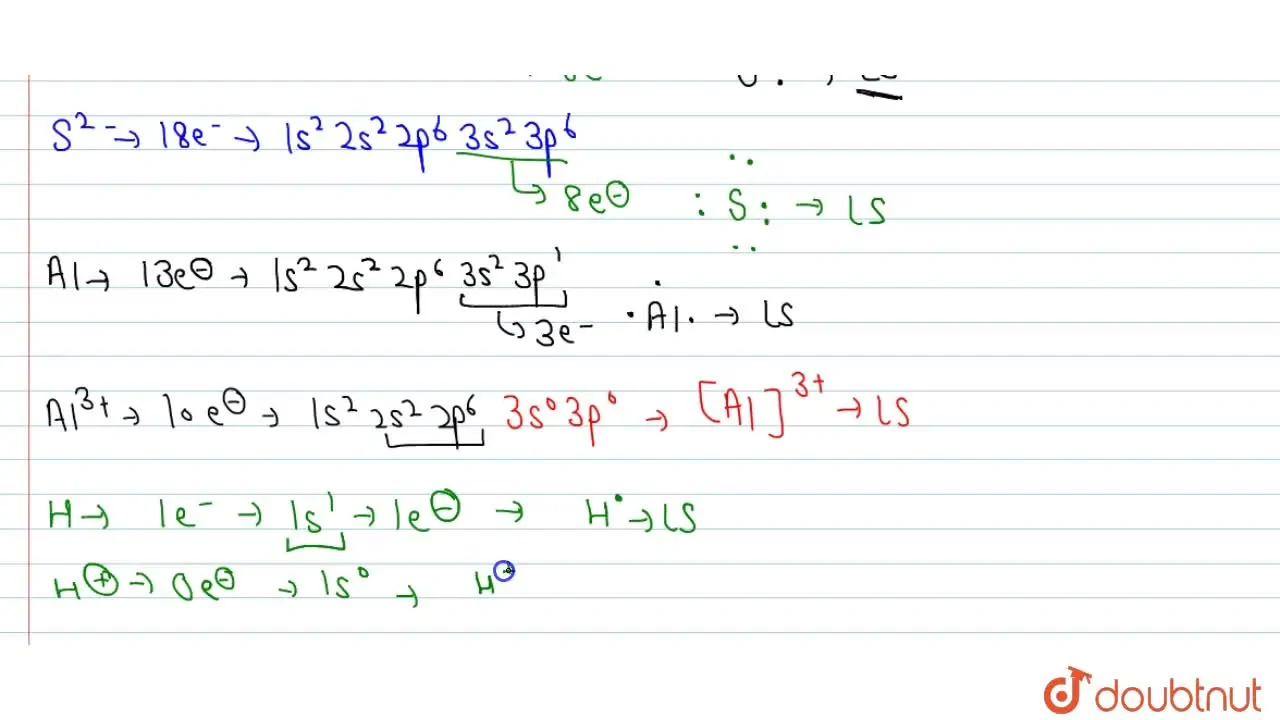 S²⁻ → 18e⁻ → 1s² 2s² 2p⁶ 3s² 3p⁶
↳ 8e⊖ :S: → LS
Al → 13e⊖ → 1s² 2s² 2p⁶ 3s² 3p¹
↳ 3e⁻ ·Al· → LS
Al³⁺ → 10e⊖ → 1s² 2s² 2p⁶ 3s⁰ 3p⁰ → [Al]³⁺ → LS
H → 1e⁻ → 1s¹ → 1e⊖ → H• → LS
H⊕ → 0e⊖ → 1s⁰ → H
doubtnut